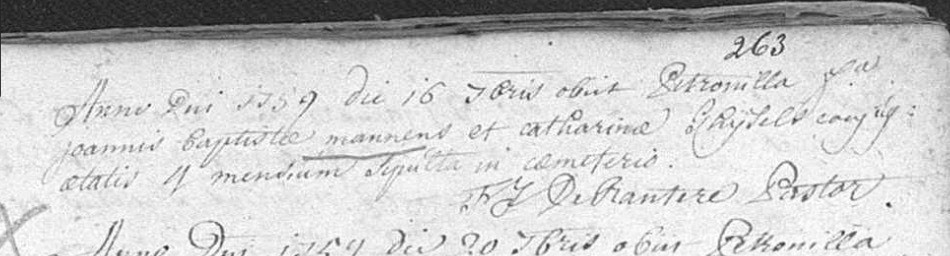 263
Anno Dni 1759 die 16 7bris obiit Petronilla f.a
joannis baptistæ mannens et catharinæ Ghijsels conjug:
ætatis 4 mensium sepulta in cæmeterio.
De Pastor.
Anno Dni 1759 die 20 7bris obiit Petronilla